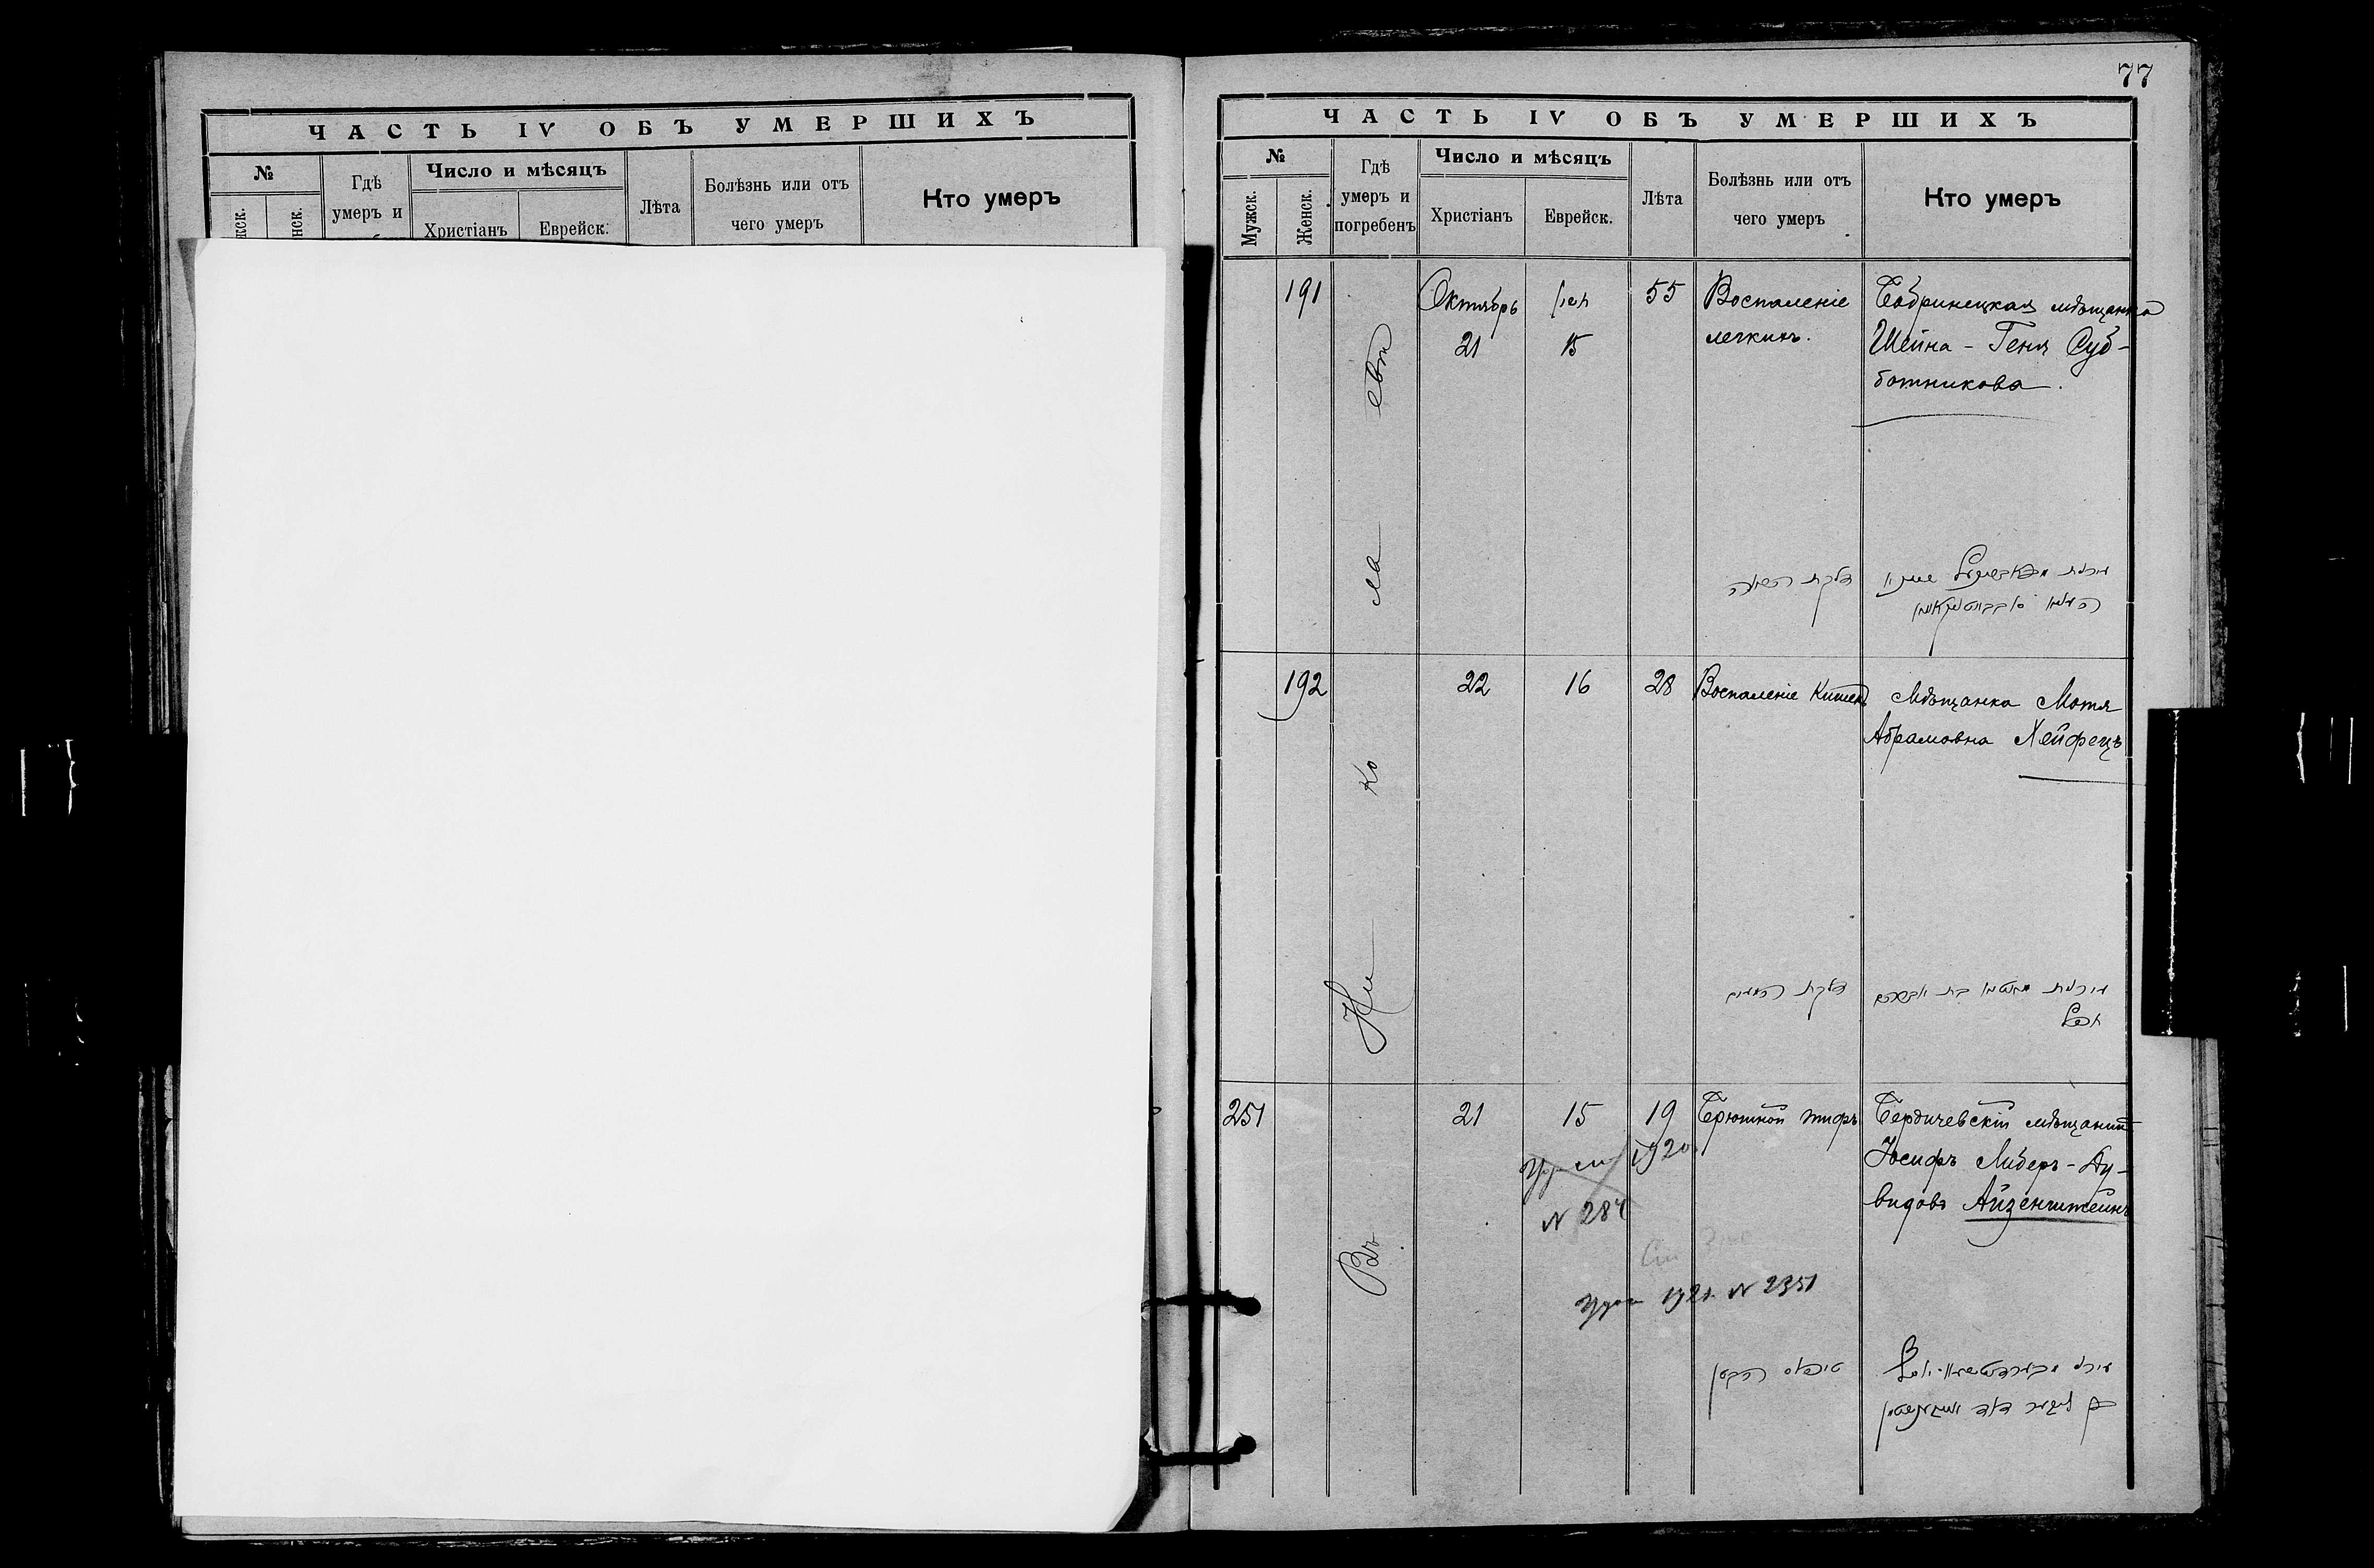 ЧАСТЬ IV ОБЪ УМЕРШИХЪ
№
Гдѣ
умеръ и
Число и мѣсяцъ
Христіанъ
Еврейск.
Лѣта
Болѣзнь или отъ
чего умеръ
Кто умеръ
77
ЧАСТЬ IV ОБЪ УМЕРШИХЪ
№
Мужск.
Женск.
Гдѣ
умеръ и
погребенъ
Число и мѣсяцъ
Христіанъ
Еврейск.
Лѣта
Болѣзнь или отъ
чего умеръ
Кто умеръ
Въ Николаевѣ
191
Октябрь
21
15
55
Воспаленіе
легкихъ.
Бобринецкая мѣщанка
Шейна - Геня Суб-
ботникова.
דלקת הריאה
192
22
16
28
Воспаленіе кишекъ
Мѣщанка Мотя
Абрамовна Хейфецъ
דלקת
251
21
15
19
Брюшной тифъ
Бердичевскій мѣщанинъ
Іосифъ Либеръ - Ду-
видовъ Айзенштейнъ
1920
N 284
1921 N 2351